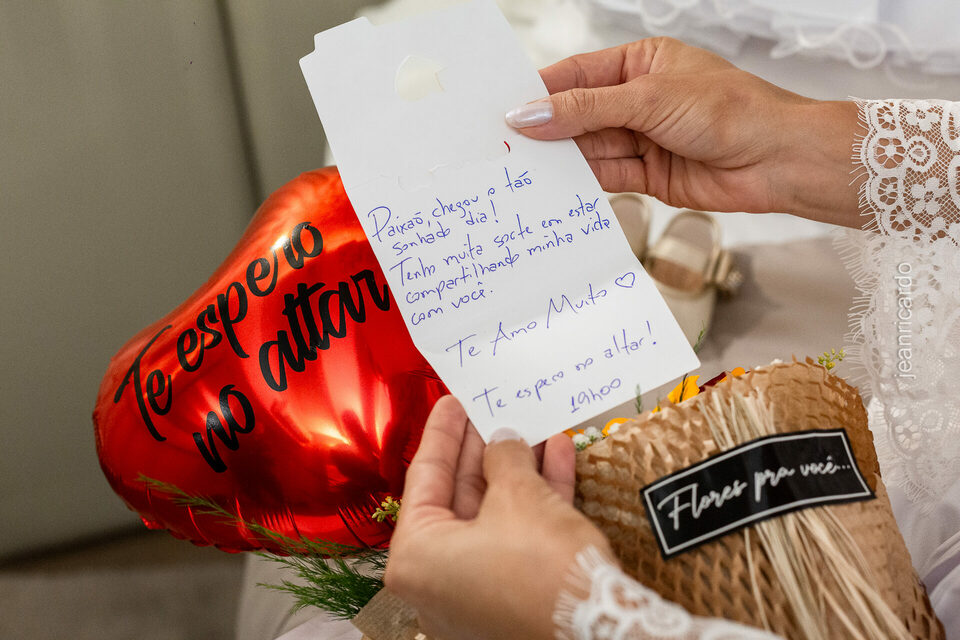 Te espero
no altar
Paixão, chegou o tão
sonhado dia!
Tenho muita sorte em estar
compartilhando minha vida
com você.
Te Amo Muito ♡
Te espero no altar!
19h00
Flores pra você...
jeanricardo